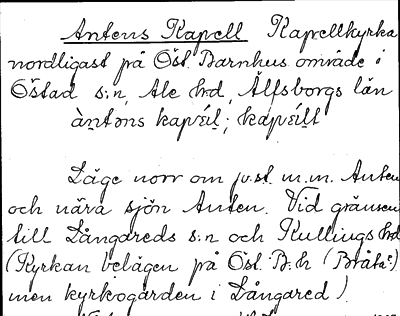 Antens Kapell Kapellkyrka
nordligast på Öst. Barnhus område i
Östad s:n, Ale hd, Älfsborgs län
Läge norr om jv.st. m.m. Anten
och nära sjön Anten. Vid gränsen
till Långareds s:n och Kullings hd
(Kyrkan belägen på Öst. B.h (Bråta)
men kyrkogården i Långared).